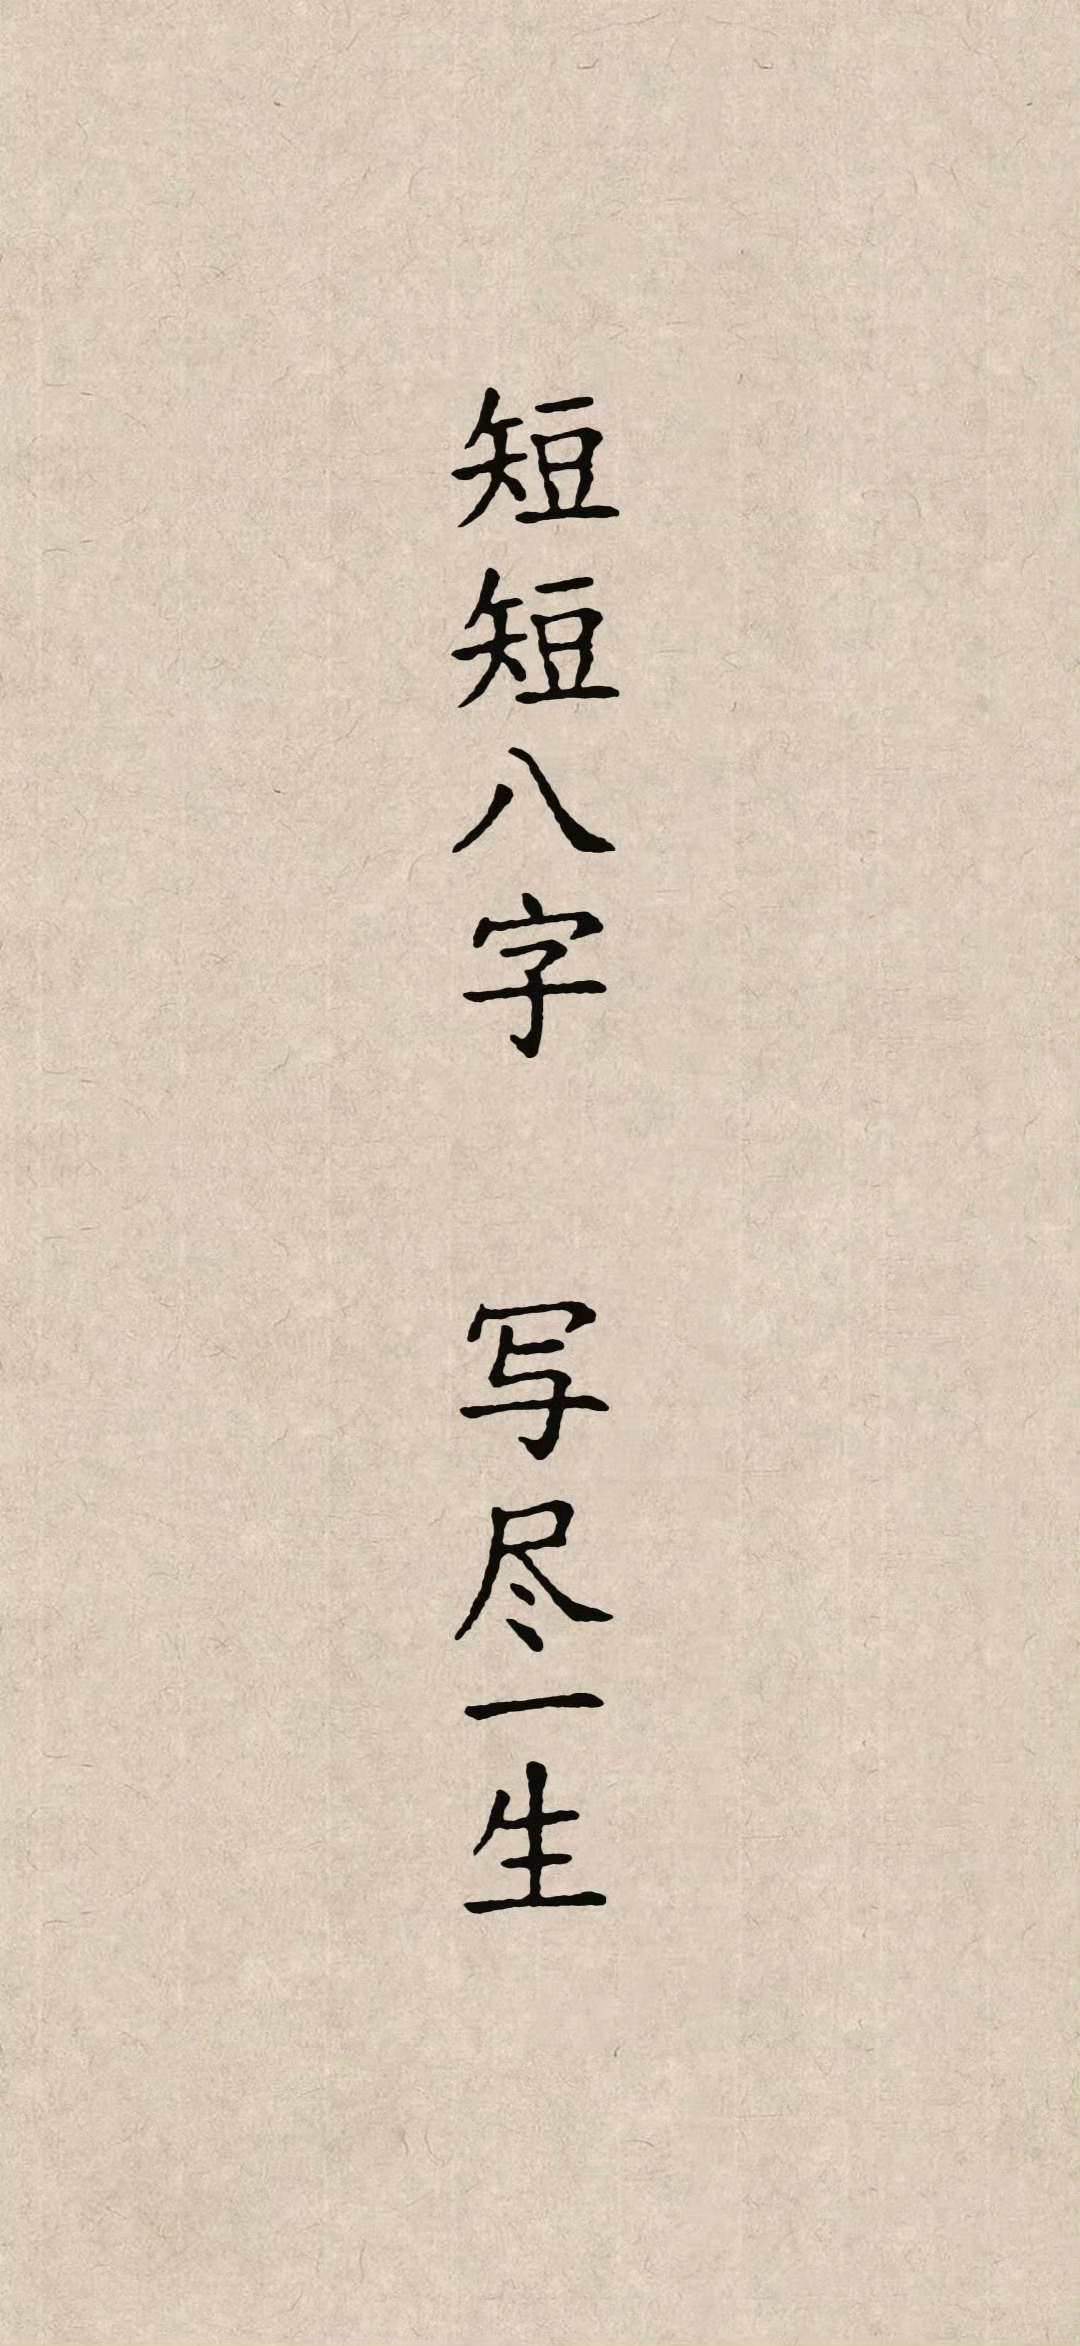 短短八字
写尽一生